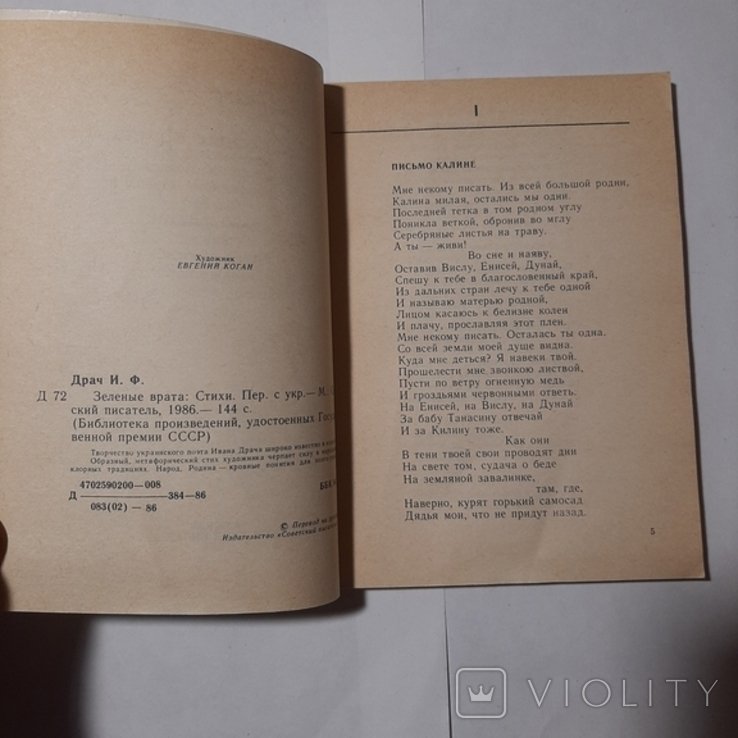 Художник
ЕВГЕНИЙ КОГАН
Драч И. Ф.
Д 72 Зеленые врата: Стихи. Пер. с укр.— М.
ский писатель, 1986.— 144 с.
(Библиотека произведений, удостоенных Госу
венной премии СССР)
Творчество украинского поэта Ивана Драча широко известно
Образный, метафорический стих художника черпает силу в
клорных традициях. Народ, Родина — кровные понятия для
4702590200—008
Д 384—86
083(02) — 86
ББК
© Перевод на
Издательство «Советский
I
ПИСЬМО КАЛИНЕ
Мне некому писать. Из всей большой родни,
Калина милая, остались мы одни.
Последней тетка в том родном углу
Поникла веткой, обронив во мглу
Серебряные листья на траву.
А ты — живи!
Во сне и наяву,
Оставив Вислу, Енисей, Дунай,
Спешу к тебе в благословенный край,
Из дальних стран лечу к тебе одной
И называю матерью родной,
Лицом касаюсь к белизне колен
И плачу, прославляя этот плен.
Мне некому писать. Осталась ты одна.
Со всей земли моей душе видна.
Куда мне деться? Я навеки твой.
Прошелести мне звонкою листвой,
Пусти по ветру огненную медь
И гроздьями червонными ответь.
На Енисей, на Вислу, на Дунай
За бабу Танасину отвечай
И за Килину тоже.
Как они
В тени твоей свои проводят дни
На свете том, судача о беде
На земляной завалинке,
там, где,
Наверно, курят горький самосад
Дядья мои, что не придут назад.
5
VIOLITY